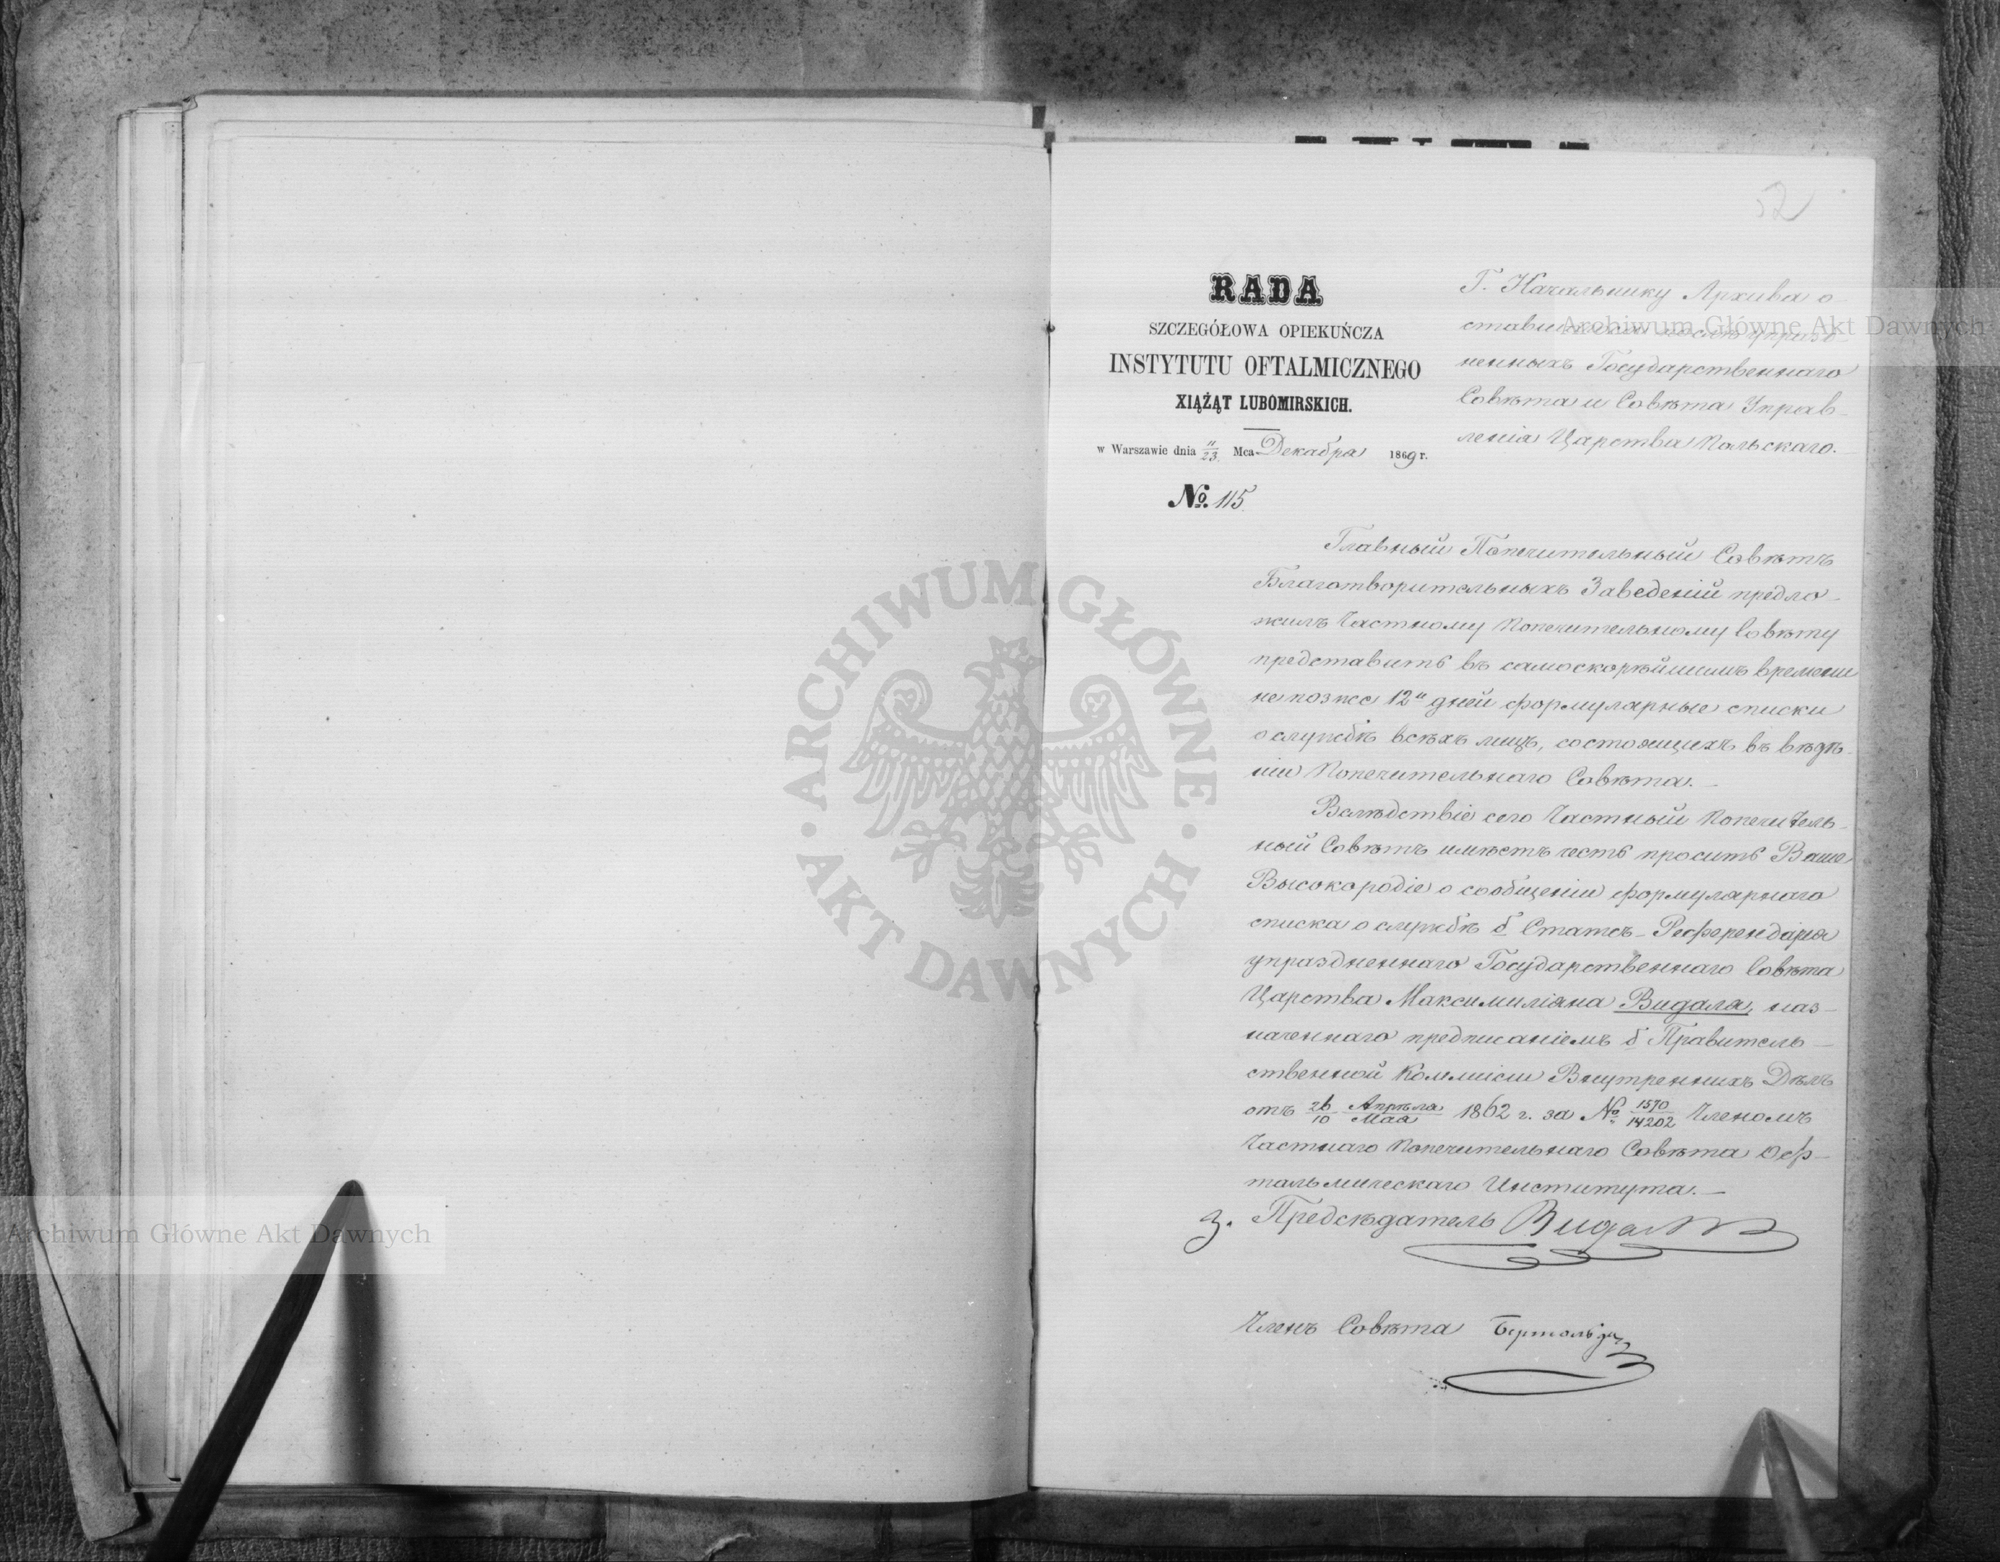 52
RADA
SZCZEGÓŁOWA OPIEKUŃCZA
INSTYTUTU OFTALMICZNEGO
XIĄŻĄT LUBOMIRSKICH.
w Warszawie dnia 11/23 Mca Декабря 1869 г.
№ 115
Г. Начальнику Архива о-
ставшагося послѣ упразд-
ненныхъ Государственнаго
Совѣта и Совѣта Управ-
ленія Царства Польскаго.
Главный Попечительный Совѣтъ
Благотворительныхъ Заведеній предло-
жилъ Частному Попечительному Совѣту
представить въ самоскорѣйшимъ времени
не позже 12и дней формулярные списки
о службѣ всѣхъ лицъ, состоящихъ въ вѣдѣ-
ніи Попечительнаго Совѣта.—
Вслѣдствіе сего Частный Попечитель-
ный Совѣтъ имѣетъ честь просить Ваше
Высокородіе о сообщеніи формулярнаго
списка о службѣ б Статсъ-Референдарія
упраздненнаго Государственнаго Совѣта
Царства Максимиліана Видаля, наз-
наченнаго предписаніемъ б Правитель-
ственной Коммисіи Внутреннихъ Дѣлъ
отъ 26/10 Апрѣля/Мая 1862 г. за № 1570/14202 Членомъ
Частнаго Попечительнаго Совѣта Оф-
тальмическаго Института.—
З. Предсѣдатель Видаль
Членъ Совѣта Бертольди
Archiwum Główne Akt Dawnych
Archiwum Główne Akt Dawnych
ARCHIWUM GŁÓWNE · AKT DAWNYCH ·